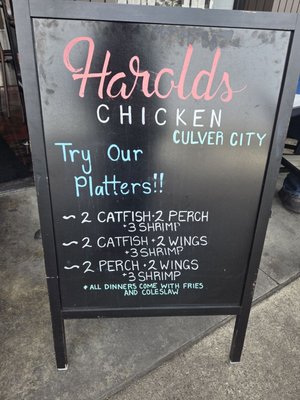 Harolds
CHICKEN
CULVER CITY
Try Our
Platters!!
~ 2 CATFISH • 2 PERCH
• 3 SHRIMP
~ 2 CATFISH • 2 WINGS
• 3 SHRIMP
~ 2 PERCH • 2 WINGS
• 3 SHRIMP
* ALL DINNERS COME WITH FRIES
AND COLESLAW